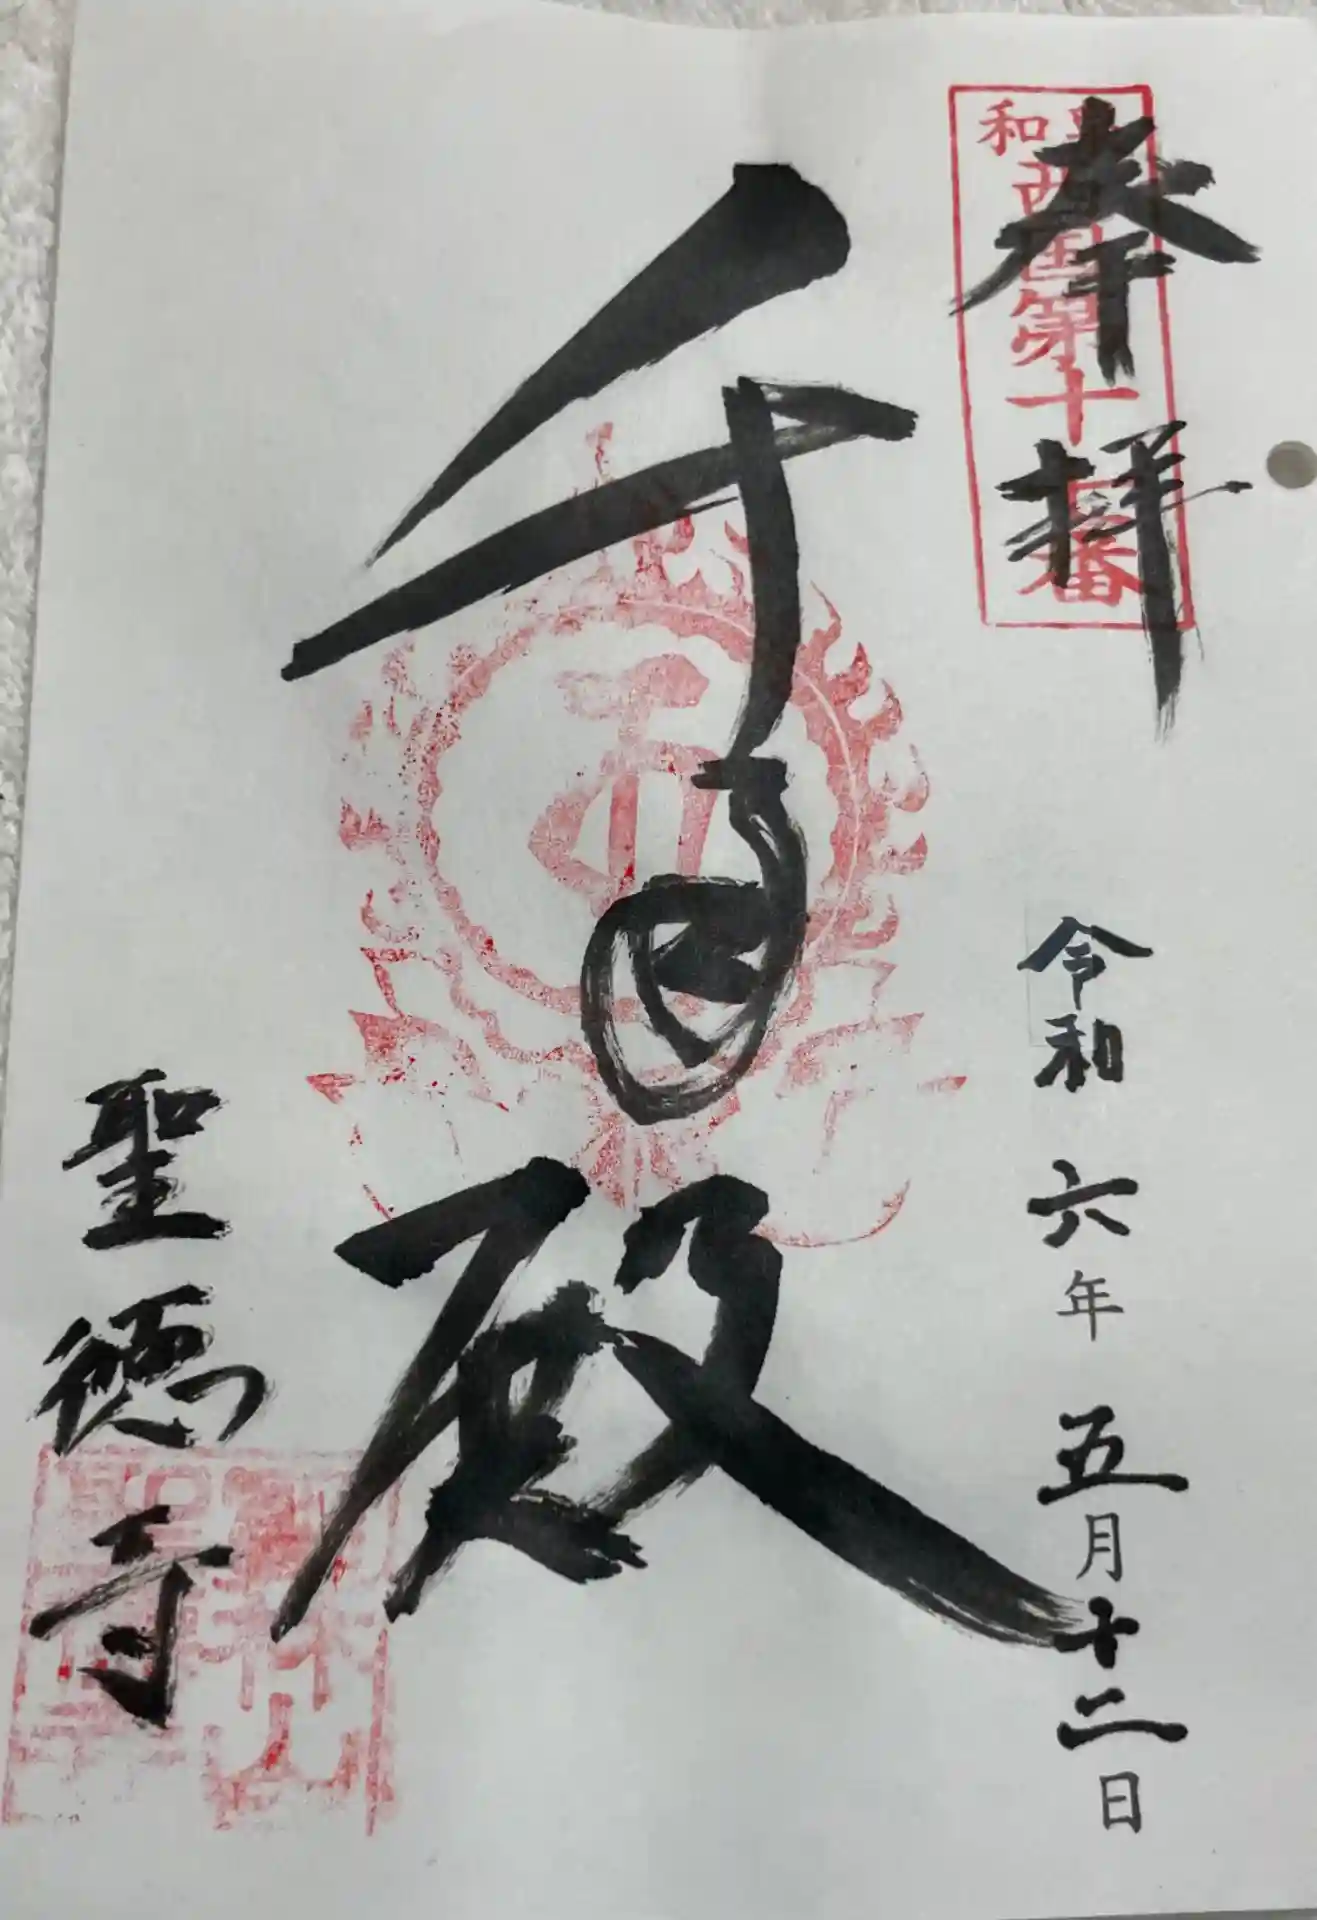 奉拝
和
西国第十
番
令和六年五月十二日
千
殿
聖徳寺